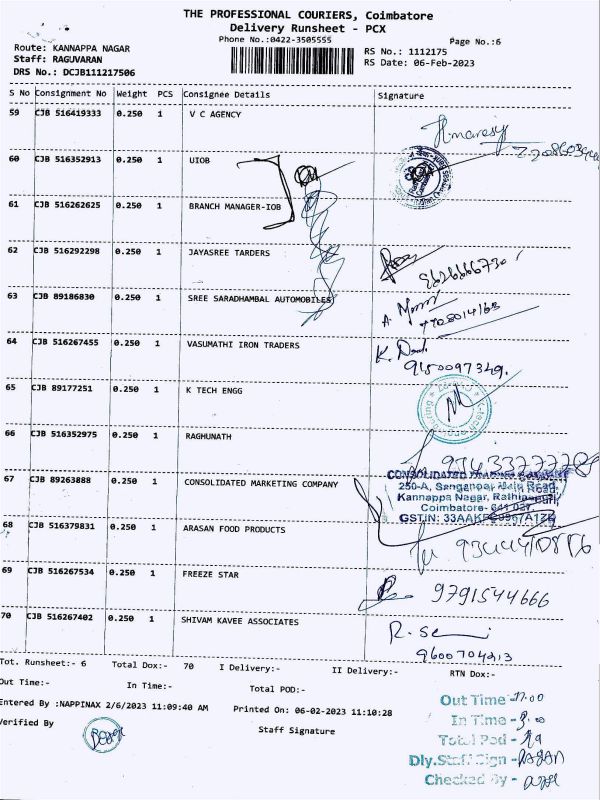 THE PROFESSIONAL COURIERS, Coimbatore
Delivery Runsheet - PCX
Phone No.:0422-3505555
Page No.:6
Route: KANNAPPA NAGAR
Staff: RAGUVARAN
DRS No.: DCJB111217506
RS No.: 1112175
RS Date: 06-Feb-2023
S No Consignment No Weight PCS Consignee Details Signature
59 CJB 516419333 0.250 1 V C AGENCY
60 CJB 516352913 0.250 1 UIOB
61 CJB 516262625 0.250 1 BRANCH MANAGER-IOB
62 CJB 516292298 0.250 1 JAYASREE TARDERS
63 CJB 89186830 0.250 1 SREE SARADHAMBAL AUTOMOBILES
64 CJB 516267455 0.250 1 VASUMATHI IRON TRADERS
9150097349.
65 CJB 89177251 0.250 1 K TECH ENGG
66 CJB 516352975 0.250 1 RAGHUNATH
67 CJB 89263888 0.250 1 CONSOLIDATED MARKETING COMPANY
CONSOLIDATED
250-A, Sanganoor Main Road,
Kannappa Nagar,
Coimbatore- 641 027.
GSTIN:
68 CJB 516379831 0.250 1 ARASAN FOOD PRODUCTS
69 CJB 516267534 0.250 1 FREEZE STAR
9791544666
70 CJB 516267402 0.250 1 SHIVAM KAVEE ASSOCIATES
9600704213
Tot. Runsheet:- 6 Total Dox:- 70 I Delivery:- II Delivery:- RTN Dox:-
Out Time:- In Time:- Total POD:-
Entered By :NAPPINAX 2/6/2023 11:09:40 AM Printed On: 06-02-2023 11:10:28
Verified By Staff Signature
Out Time
In Time -
Total Pod -
Dly.Staff Sign -
Checked By -